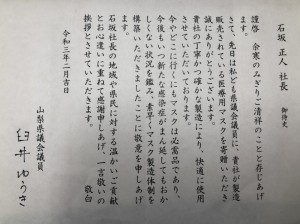 石坂 正人 社長 御侍史
謹啓 余寒のみぎりご清祥のことと存じあげ
ます。
さて、先日は私ども県議会議員に、貴社が製造
販売されている医療用マスクを寄贈いただき
誠にありがとうございます。
貴社の丁寧かつ確かな製造により、快適に使用
させていただいております。
今やどこに行くにもマスクは必需品であり、
今後もいつ新たな感染症がまん延してもおか
しくない状況を鑑み、素早くマスク製造体制を
構築いただきましたことに敬意を申しあげ
ます。
石坂社長の地域や県民に対する温かいご貢献
とお心遣いに重ねて感謝申しあげ、一言敬いの
挨拶とさせていただきます。
敬白
令和三年二月吉日
山梨県議会議員
臼井ゆうき